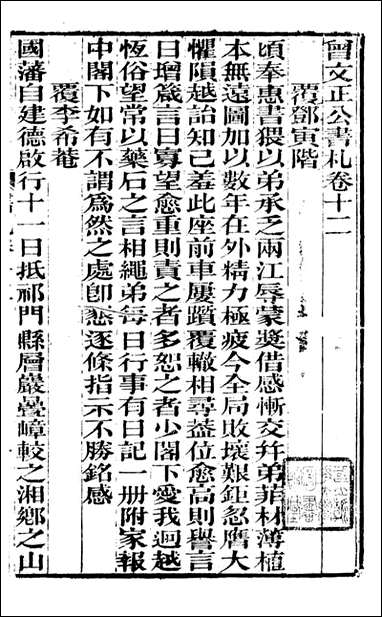 曾文正公書札卷十二
覆鄧寅階
頃奉惠書猥以弟承乏兩江辱蒙奬借感慚交幷弟菲材薄植
本無遠圖加以數年在外精力極疲今全局敗壞艱鉅忽膺大
懼隕越詒知己羞此座前車屢躓覆轍相尋益位愈高則譽言
日增箴言日寡望愈重則責之者多恕之者少閣下愛我迥越
恆俗望常以藥石之言相繩弟每日行事有日記一册附家報
中閣下如有不謂爲然之處卽懇逐條指示不勝銘感
覆李希菴
國藩自建德啟行十一日抵祁門縣層巖疊嶂較之湘鄉之山